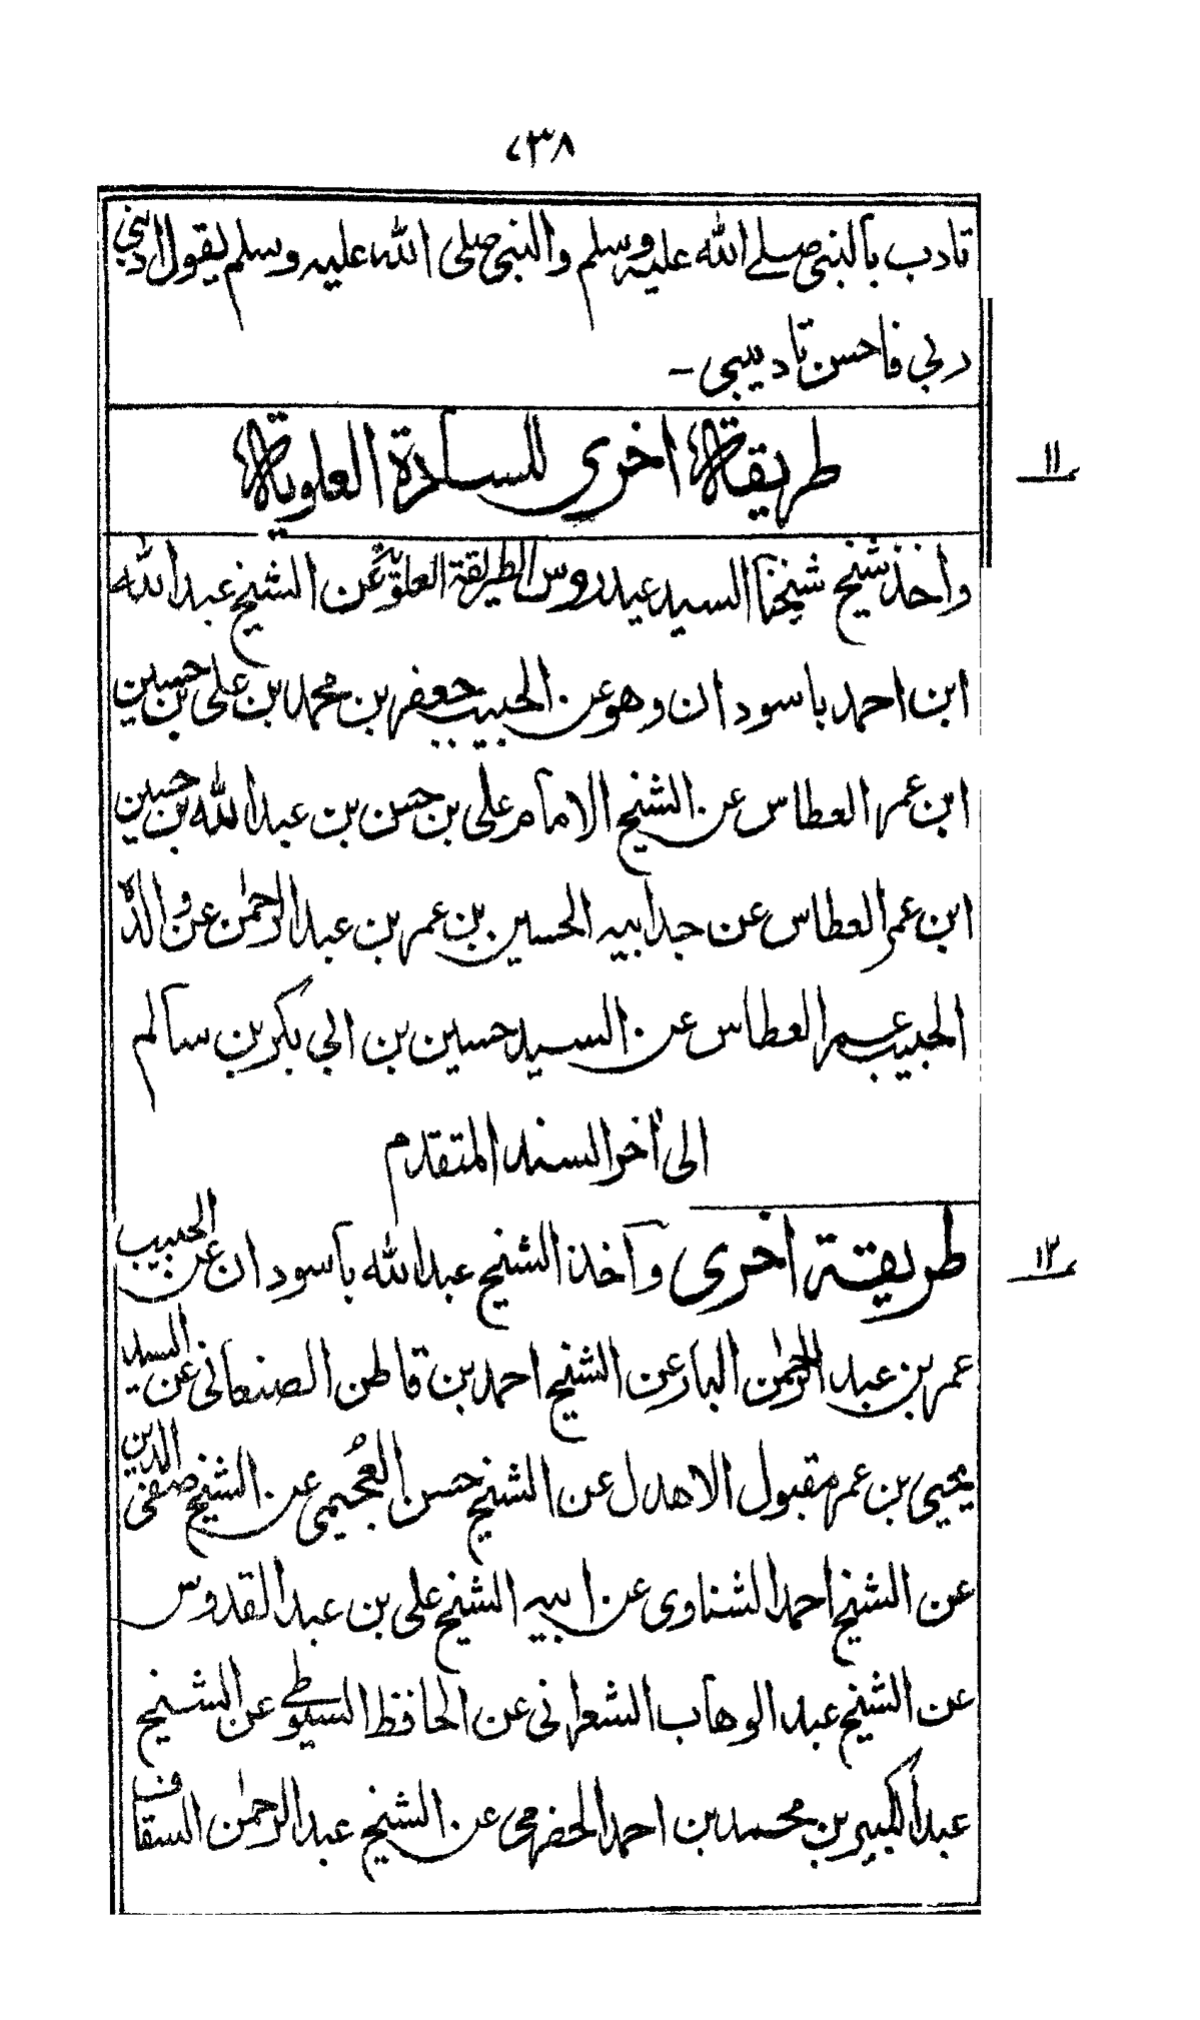 ٢٣٨
تادب بالنبى صلے الله عليه وسلم والنبى صلى الله عليه وسلم يقول ادبني
ربي فاحسن تاديبى -
١١
طريقة اخرى للسادة العلوية
واخذ شيخ شيخنا السيد عيدروس الطريقة العلوية عن الشيخ عبد الله
ابن احمد باسودان وهو عن الحبيب جعفر بن محمد بن على بن حسين
ابن عمر العطاس عن الشيخ الامام على بن حسن بن عبد الله بن حسين
ابن عمر العطاس عن جد ابيه الحسين بن عمر بن عبد الرحمٰن عن والده
الحبيب عمر العطاس عن السيد حسين بن ابي بكر بن سالم
الى أخر السند المتقدم
١٢
طريقة اخرى وأخذ الشيخ عبد الله باسودان عن الحبيب
عمر بن عبد الرحمٰن البار عن الشيخ احمد بن قاطن الصنعانى عن السيد
يحيى بن عمر مقبول الاهدل عن الشيخ حسن العُجيمى عن الشيخ صفى الدين
عن الشيخ احمد الشناوى عن ابيه الشيخ على بن عبد القدوس
عن الشيخ عبد الوهاب الشعرانى عن الحافظ السيوطي عن الشيخ
عبد الكبير بن محمد بن احمد الحضرمى عن الشيخ عبد الرحمٰن السقاف